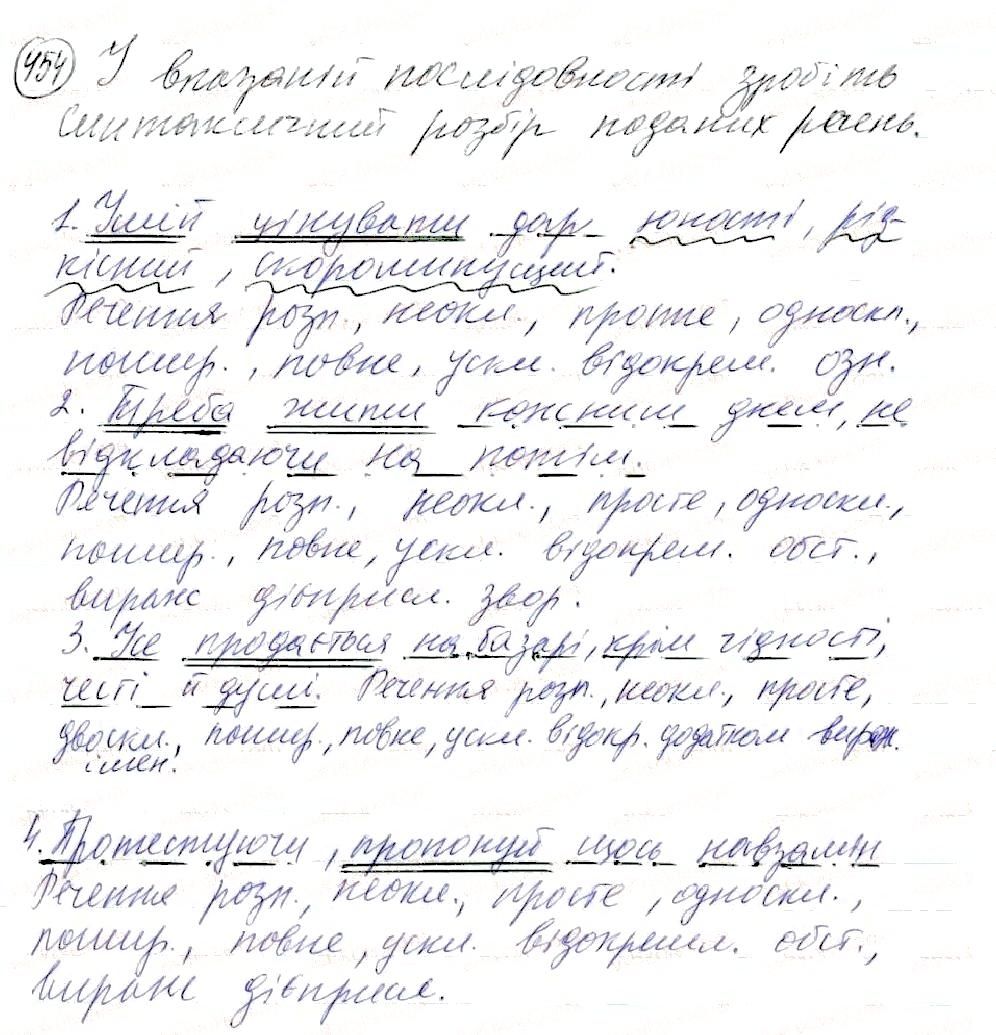 454 У вказаній послідовності зробіть
синтаксичний розбір поданих речень.
1. Умій цінувати дар юності, рід-
кісний, скороминущий.
Речення розп., неокл., просте, односкл.,
пошир., повне, ускл. відокрем. озн.
2. Треба жити кожним днем, не
відкладаючи на потім.
Речення розп., неокл., просте, односкл.,
пошир., повне, ускл. відокрем. обст.,
вираж дієприсл. звор.
3. Усе продається на базарі, крім гідності,
честі й душі. Речення розп., неокл., просте,
двоскл., пошир., повне, ускл. відокр. додатком вираж.
імен.
4. Протестуючи, пропонуй щось навзамін
Речення розп., неокл., просте, односкл.,
пошир., повне, ускл. відокремл. обст.,
вираж дієприсл.